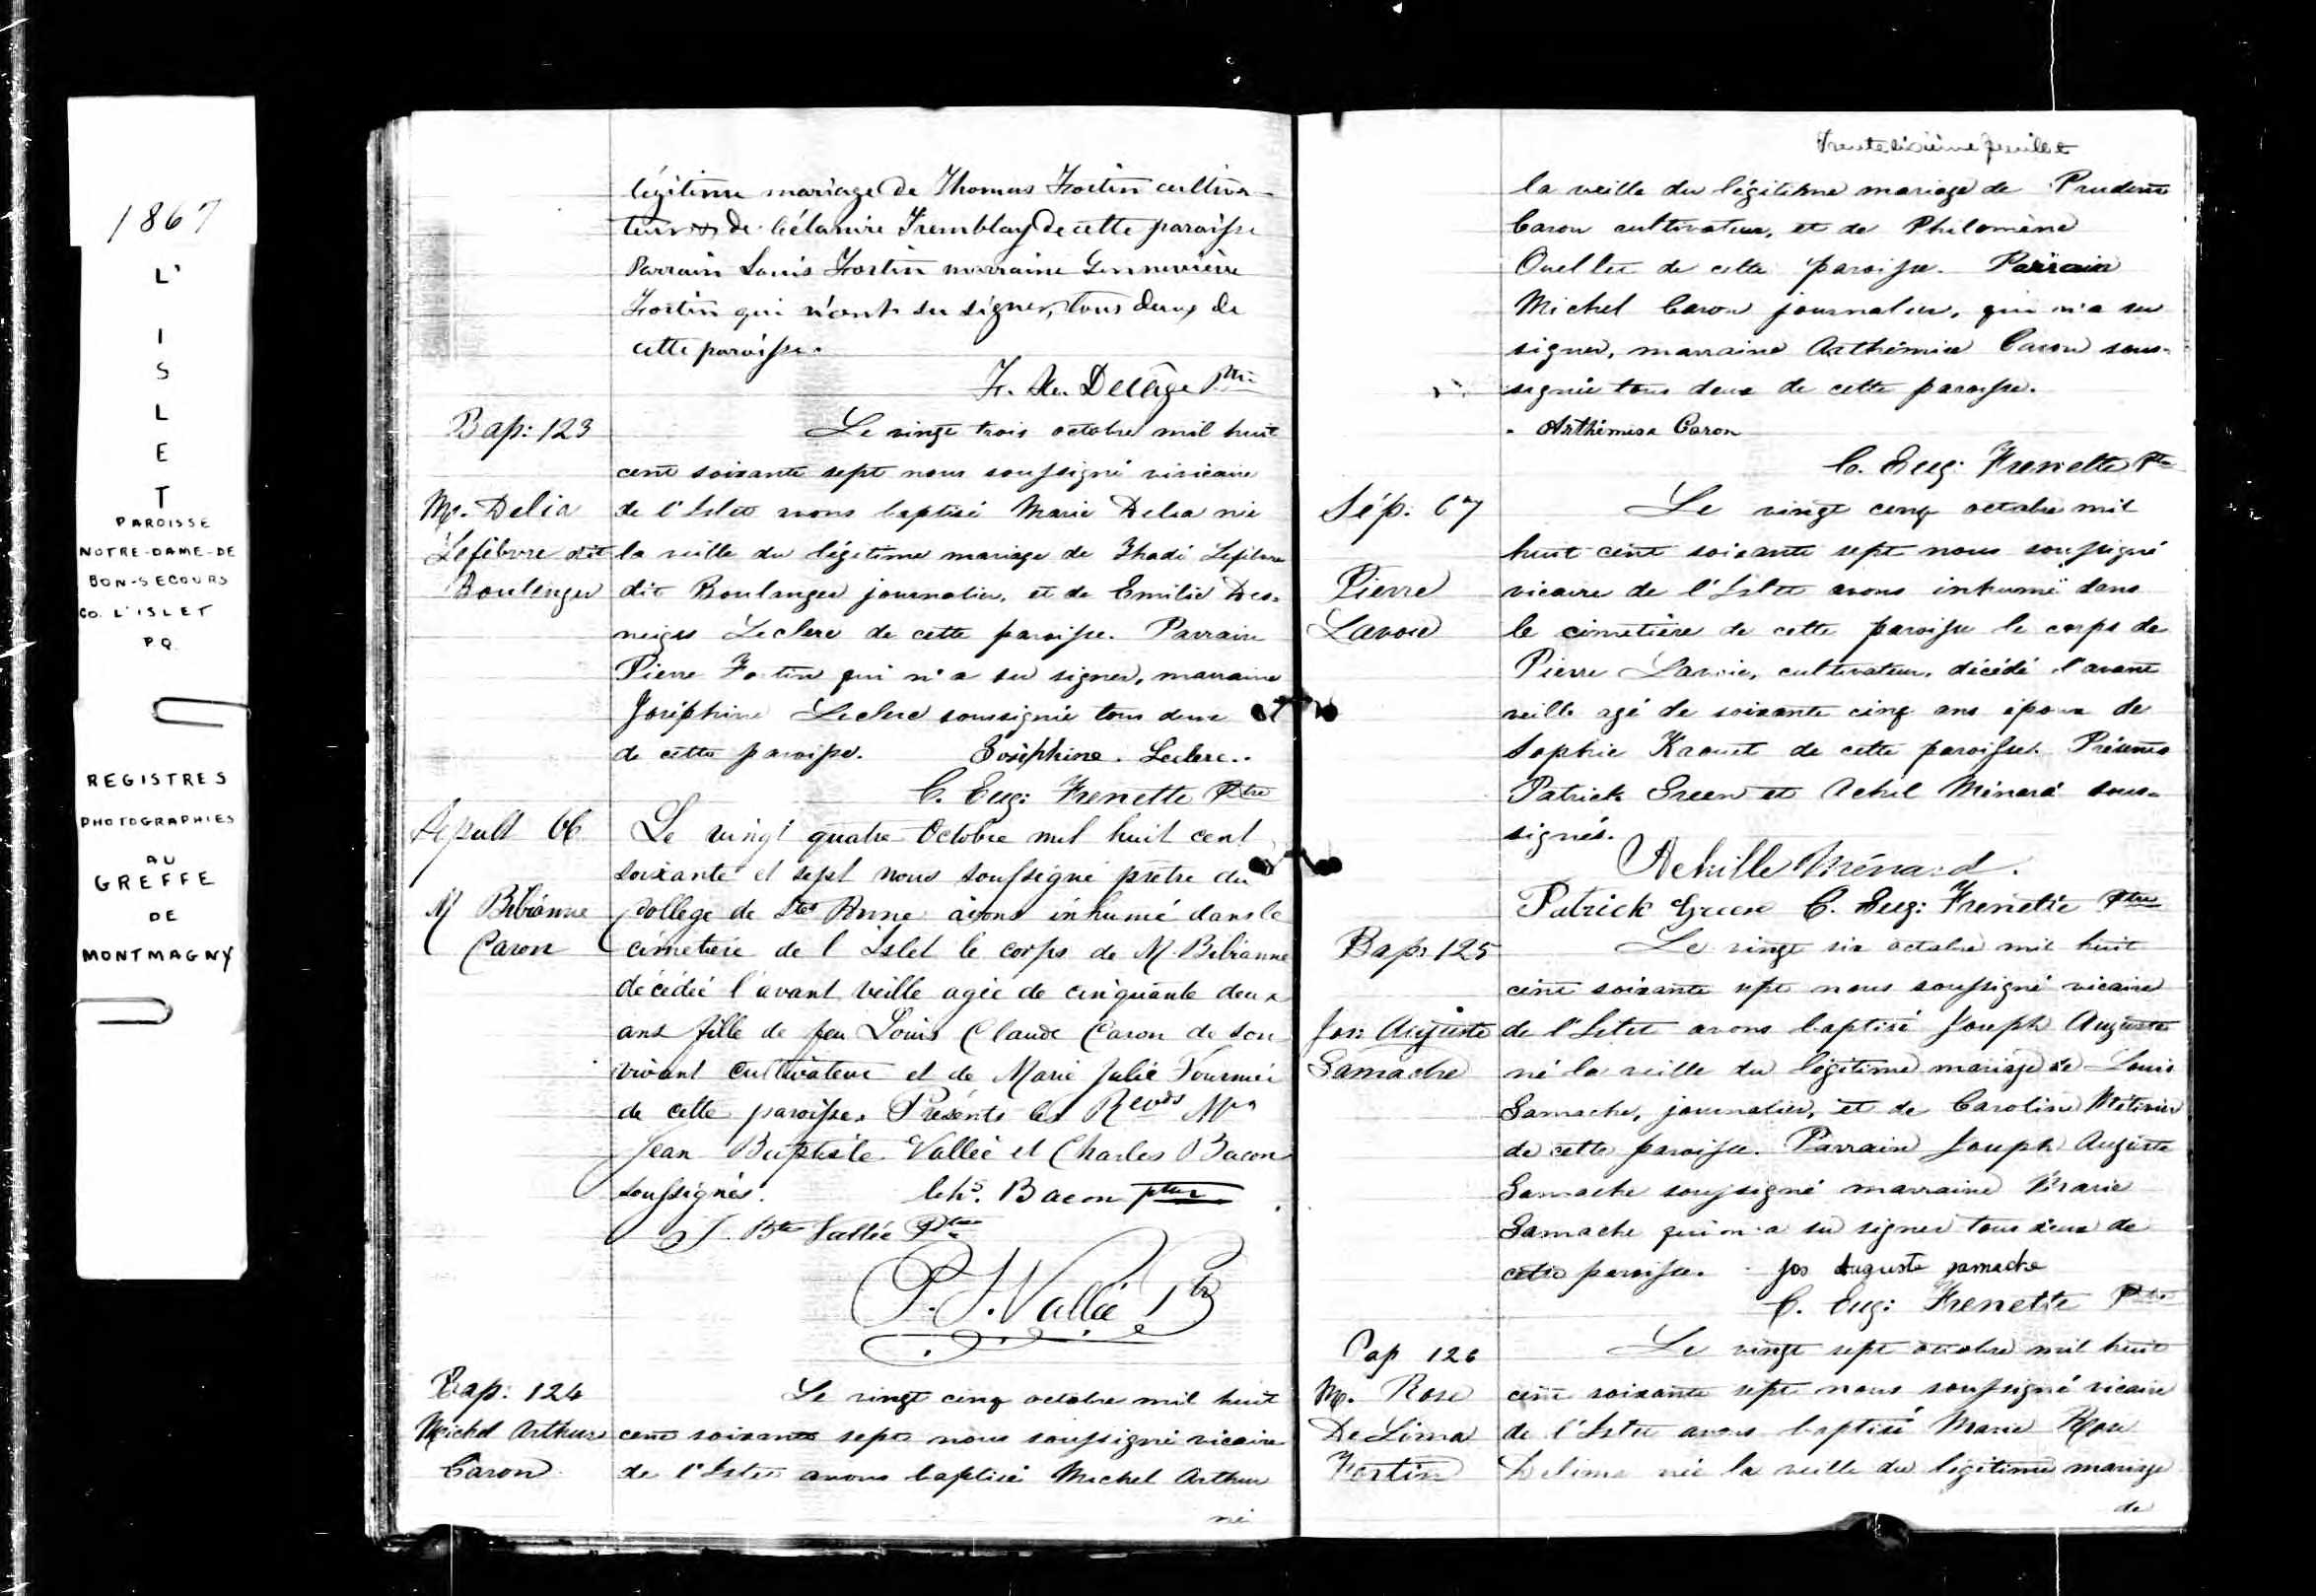 1867
L'
I
S
L
E
T
PAROISSE
NOTRE-DAME-DE
BON-SECOURS
CO. L'ISLET
P.Q.
REGISTRES
PHOTOGRAPHIES
AU
GREFFE
DE
MONTMAGNY
légitime mariage de Thomas Fortin cultiva-
teur & de Célanire Tremblay de cette paroisse
Parrain Louis Fortin marraine Gennevière
Fortin qui n'ont su signer, tous deux de
cette paroisse.
F. X. Delâge Ptre
Bap: 123
M. Delia
Lefebvre dit
Boulenger
Le vingt trois octobre mil huit
cent soixante sept nous soussigné vicaire
de l'Islet avons baptisé Marie Delia née
la veille du légitime mariage de Thadé Lefebvre
dit Boulanger journalier, et de Emilie Des-
neiges Leclerc de cette paroisse. Parrain
Pierre Fortin qui n'a su signer, marraine
Joséphine Leclerc soussignée tous deux
de cette paroisse. Joséphine Leclerc..
C. Eug: Frenette Ptre
Sepult 66
M Bibianne
Caron
Le vingt quatre Octobre mil huit cent
soixante et sept nous soussigné prêtre du
College de Ste Anne avons inhumé dans le
cimetière de l'Islet le corps de M. Bibianne
décédée l'avant veille agée de cinquante deux
ans fille de feu Louis Claude Caron de son
vivant cultivateur et de Marie Julie Fournier
de cette paroisse. Présents les Revds Mrs
Jean Baptiste Vallée et Charles Bacon
soussignés. Chs. Bacon ptre
J. Bte Vallée Ptre
P. J. Vallée Ptr
Bap: 124
Michel Arthur
Caron
Le vingt cinq octobre mil huit
cent soixante sept nous soussigné vicaire
de l'Islet avons baptisé Michel Arthur
né
Trente sixième feuillet
la veille du légitime mariage de Prudent
Caron cultivateur, et de Philomène
Ouellet de cette paroisse. Parrain
Michel Caron journalier, qui n'a su
signer, marraine Arthémise Caron sous-
signée tous deux de cette paroisse.
Arthémise Caron
C. Eug: Frenette Ptre
Sép. 67
Pierre
Lavoie
Le vingt cinq octobre mil
huit cent soixante sept nous soussigné
vicaire de l'Islet avons inhumé dans
le cimetière de cette paroisse le corps de
Pierre Lavoie, cultivateur, décédé l'avant
veille agé de soixante cinq ans époux de
Sophie Kaouet de cette paroisse. Présents
Patrick Green et Achil Ménard sous-
signés.
Achille Ménard.
Patrick Green C. Eug: Frenette Ptre
Bap: 125
Jos: Auguste
Gamache
Le vingt six octobre mil huit
cent soixante sept nous soussigné vicaire
de l'Islet avons baptisé Joseph Auguste
né la veille du légitime mariage de Louis
Gamache, journalier, et de Caroline Métivier
de cette paroisse. Parrain Joseph Auguste
Gamache soussigné marraine Marie
Gamache qui n'a su signer tous deux de
cette paroisse. Jos Auguste gamache
C. Eug: Frenette Ptre
Bap 126
M. Rose
De Lima
Fortin
Le vingt sept octobre mil huit
cent soixante sept nous soussigné vicaire
de l'Islet avons baptisé Marie Rose
Delima née la veille du légitime mariage
de